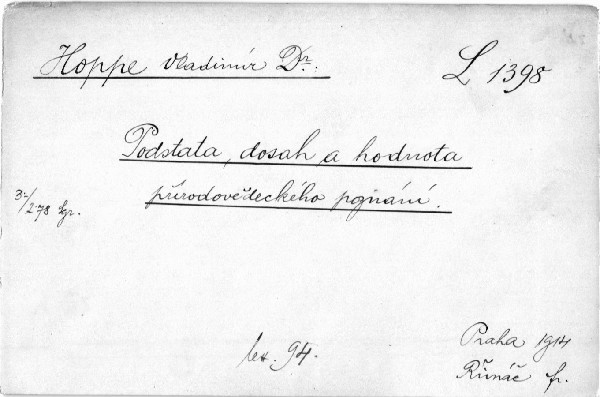 Hoppe Vladimír Dr.:
L 1398
Podstata, dosah a hodnota
přírodovědeckého poznání.
278
94.
Praha 1914
Řivnáč fr.